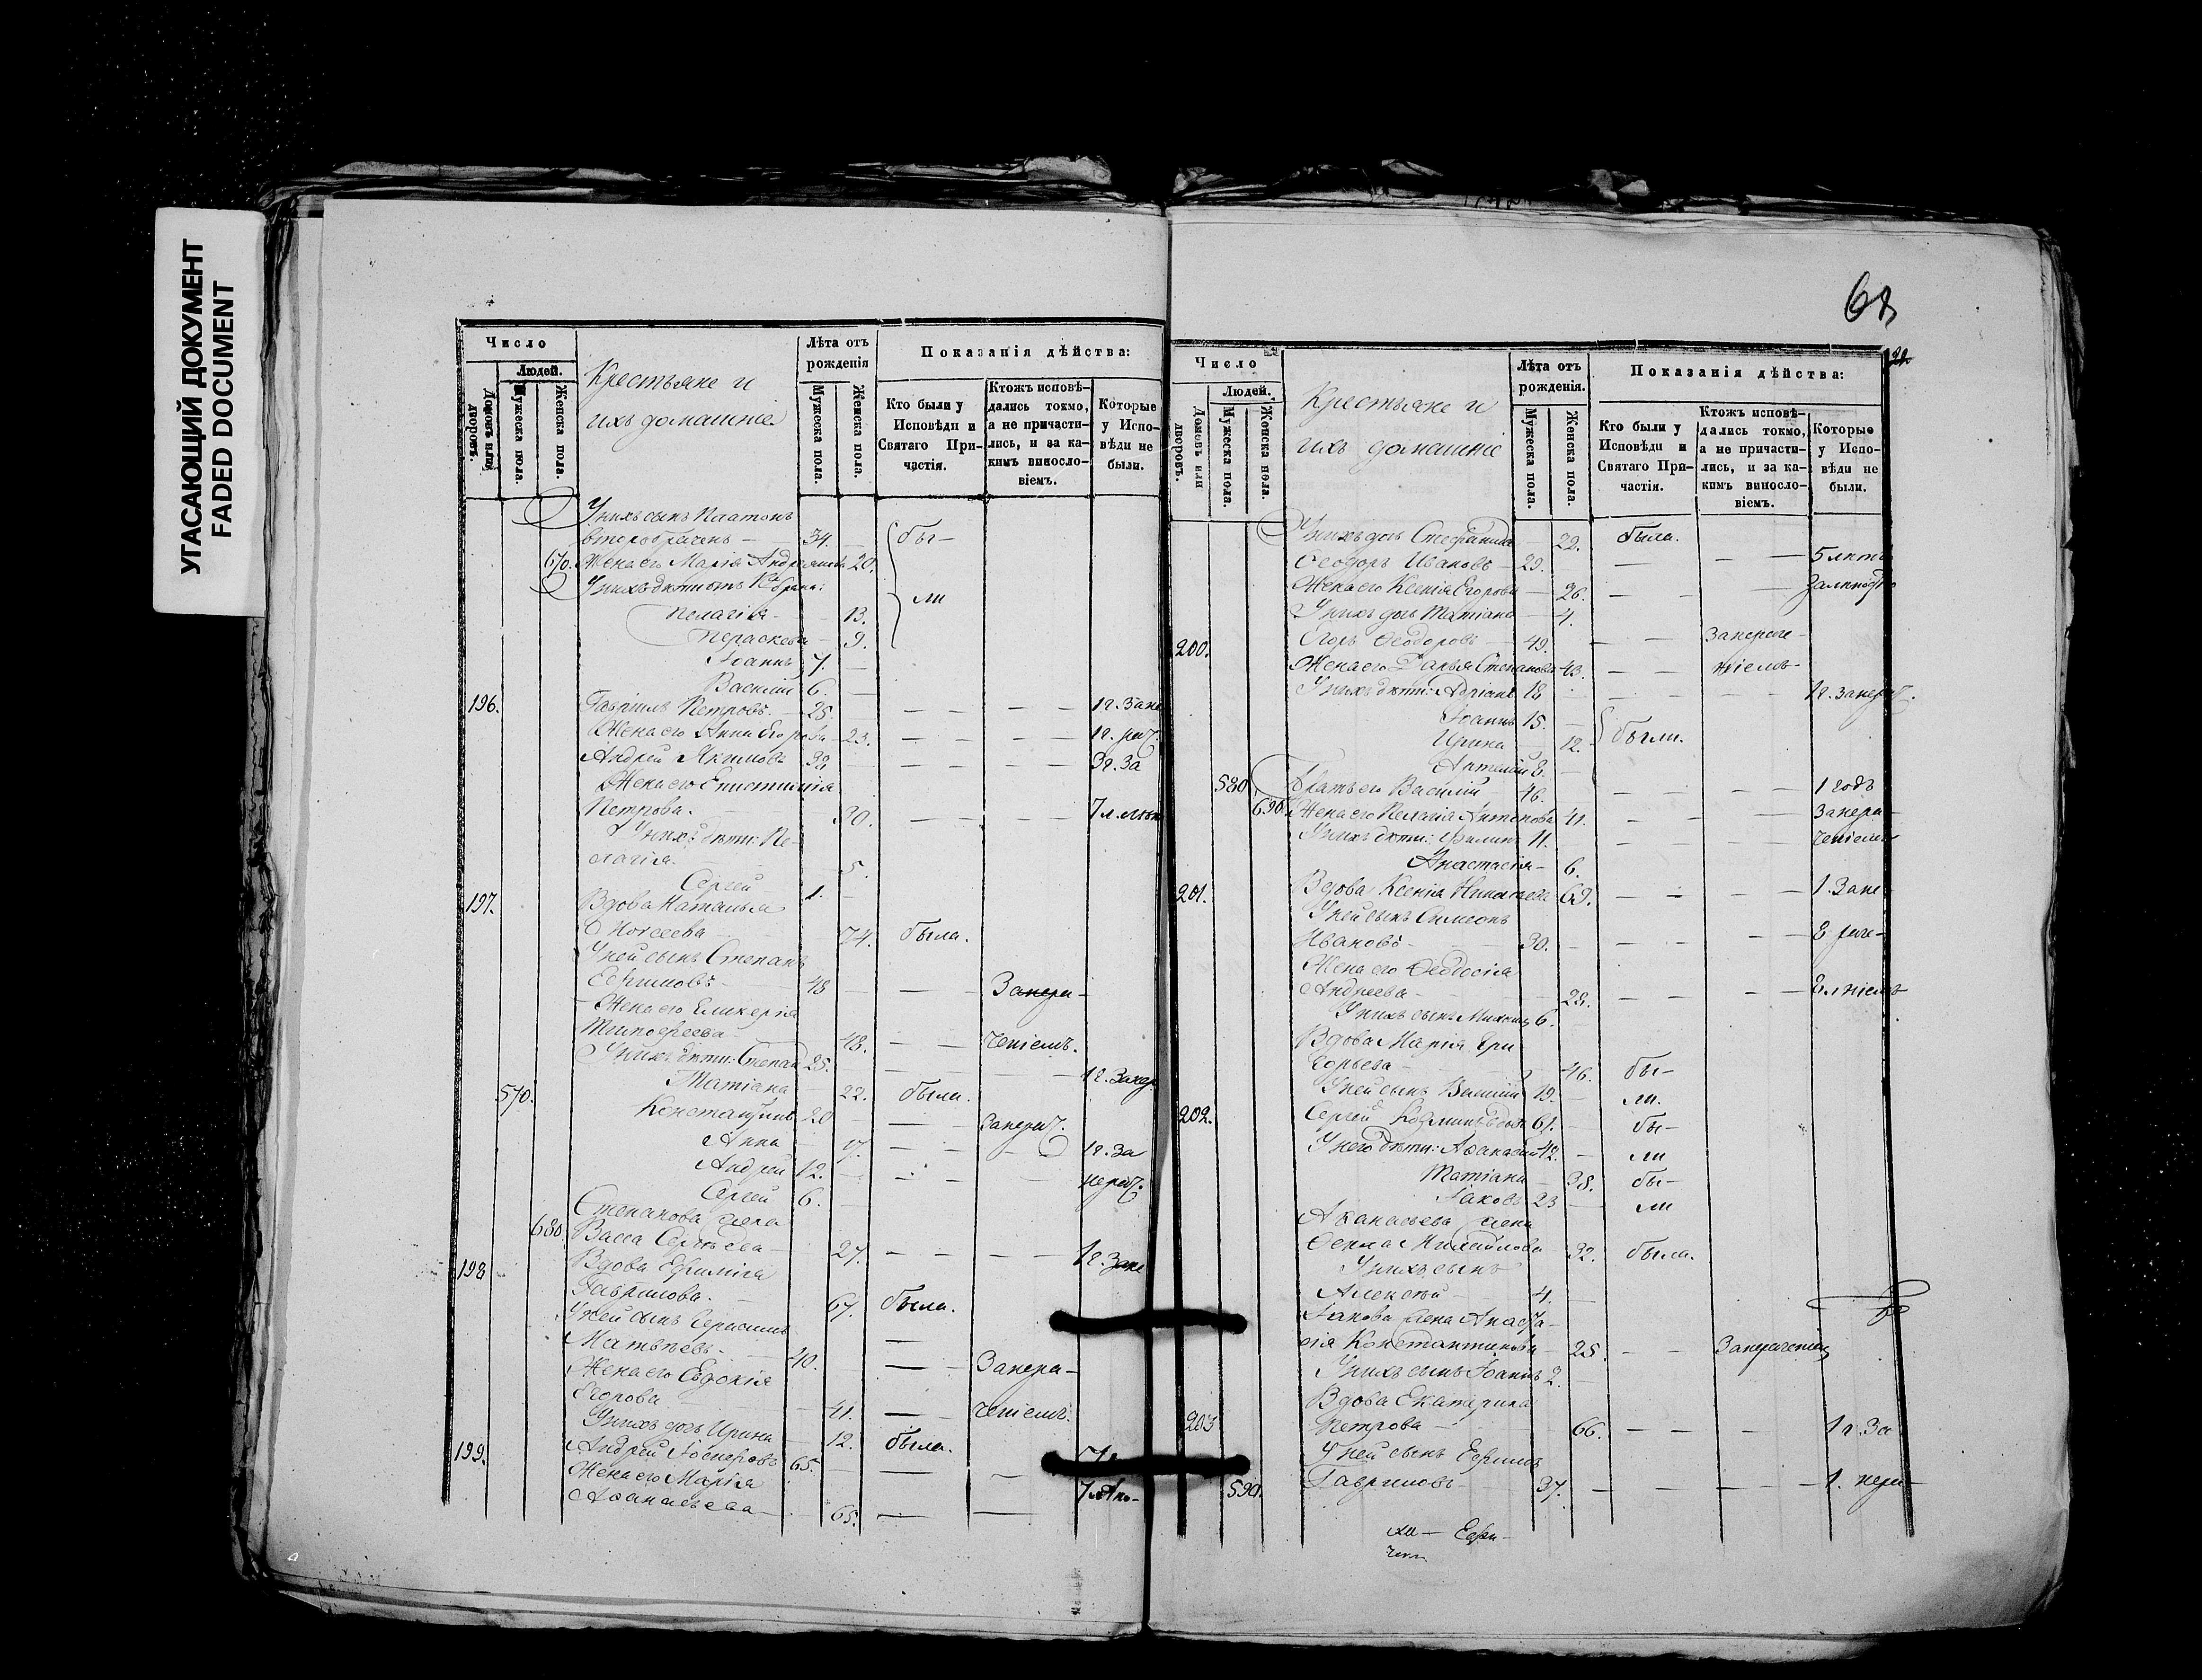 УГАСАЮЩИЙ ДОКУМЕНТ
FADED DOCUMENT
Число
Людей.
Домовъ или дворовъ.
Мужеска пола.
Женска пола.
Крестьяне и
ихъ домашніе
Лѣта отъ рожденія
Мужеска пола.
Женска пола.
Показанія дѣйства:
Кто были у Исповѣди и Святаго При-частія.
Ктожъ исповѣ-дались токмо, а не причасти-лись, и за ка-кимъ винosло-віемъ.
Которые у Испо-вѣди не были.
У нихъ сынъ Платонъ
второбраченъ — 34. бы-
670. Жена его Марія Андреянова 20.
У нихъ дѣти отъ 1го брака:
ли
Пелагія — 13.
Параскева — 9.
Іоаннъ 7. —
Василій 6. —
196. Гавріилъ Петровъ. 25. — 1 г. Зане
Жена его Анна Егорова 23. — 1 г. рач.
Андрей Якимовъ 32 — 3 г. За
Жена его Епистимія
Петрова. 30. —
У нихъ дѣти: Пе-
лагія. 5.
Сергей 1. —
197. Вдова Наталья
Моисеева 74. была.
У ней сынъ Степанъ
Ефимовъ 48 — Занера-
Жена его Гликерія
Тимофеева 48. — ченіемъ.
У нихъ дѣти: Степан 25. — 1 г. Занер.
570. Татіана 22. была.
Константинъ 20 — Занерач.
Анна 17. — 1 г. За
Андрей 12. — нерач.
Сергей 6. —
Степанова жена
680. Васса Сергѣева 27. — 1 г. Зане
198 Вдова Ефимія
Гаврилова. 67. была.
У ней сынъ Герасимъ
Матвѣевъ. 40. — Занера-
Жена его Евдокія
Егорова 41. — ченіемъ.
У нихъ дочь Ирина 12. была.
199. Андрей Никифоровъ 65. —
Жена его Марія
Аѳанасьева 65. —
68
Число
Людей.
Домовъ или дворовъ.
Мужеска пола
Женска пола.
Крестьяне и
ихъ домашніе
Лѣта отъ рожденія.
Мужеска пола.
Женска пола.
Показанія дѣйства:
Кто были у Исповѣди и Святаго При-частія.
Ктожъ исповѣ-дались токмо, а не причасти-лись, и за ка-кимъ винosло-віемъ.
Которые у Испо-вѣди не были.
У нихъ дочь Стефанида 22. была.
Ѳеодоръ Ивановъ 29. — 5 лѣтъ
Жена его Ксенія Егорова 26. —
У нихъ дочь Татіана 4.
200. Егоръ Ѳеодоровъ 49. — Занераче-
Жена его Дарья Степанова 43. — ніемъ
У нихъ дѣти: Адріанъ 18 — 1 г. занерач.
Іоаннъ 15. —
Ирина — 12. были.
Антоній 8. —
580 Братъ его Василій 46. — 1 годъ
690. Жена его Пелагія Антонова 41. — Занера-
У нихъ дѣти: Филипъ 11. — ченіемъ
Анастасія — 6.
201. Вдова Ксенія Никитева 69. — 1. Зане-
У ней сынъ Симеонъ
Ивановъ 30. —
Жена его Ѳеодосія
Андреева 28. —
У нихъ сынъ 6.
Вдова Марія Гри-
горьева 46. бы-
У ней сынъ Василій 19. — ли.
202. Сергей Козминъ вдов 61. — бы-
У него дѣти: Аѳанасій 42. — ли
Татіана — 38. бы-
Іаковъ 23 — ли
Аѳанасьева жена
Ѳекла Михайлова 32. была.
У нихъ сынъ
Алексѣй 4. —
Іакова жена Анаста-
сія Константинова 25. — Занераченіемъ
У нихъ сынъ Іоаннъ 2. —
Вдова Екатерина
203 Петрова 66. — 1 г. За
У ней сынъ Ефимъ
590. Гавриловъ 37. — 1. нера-